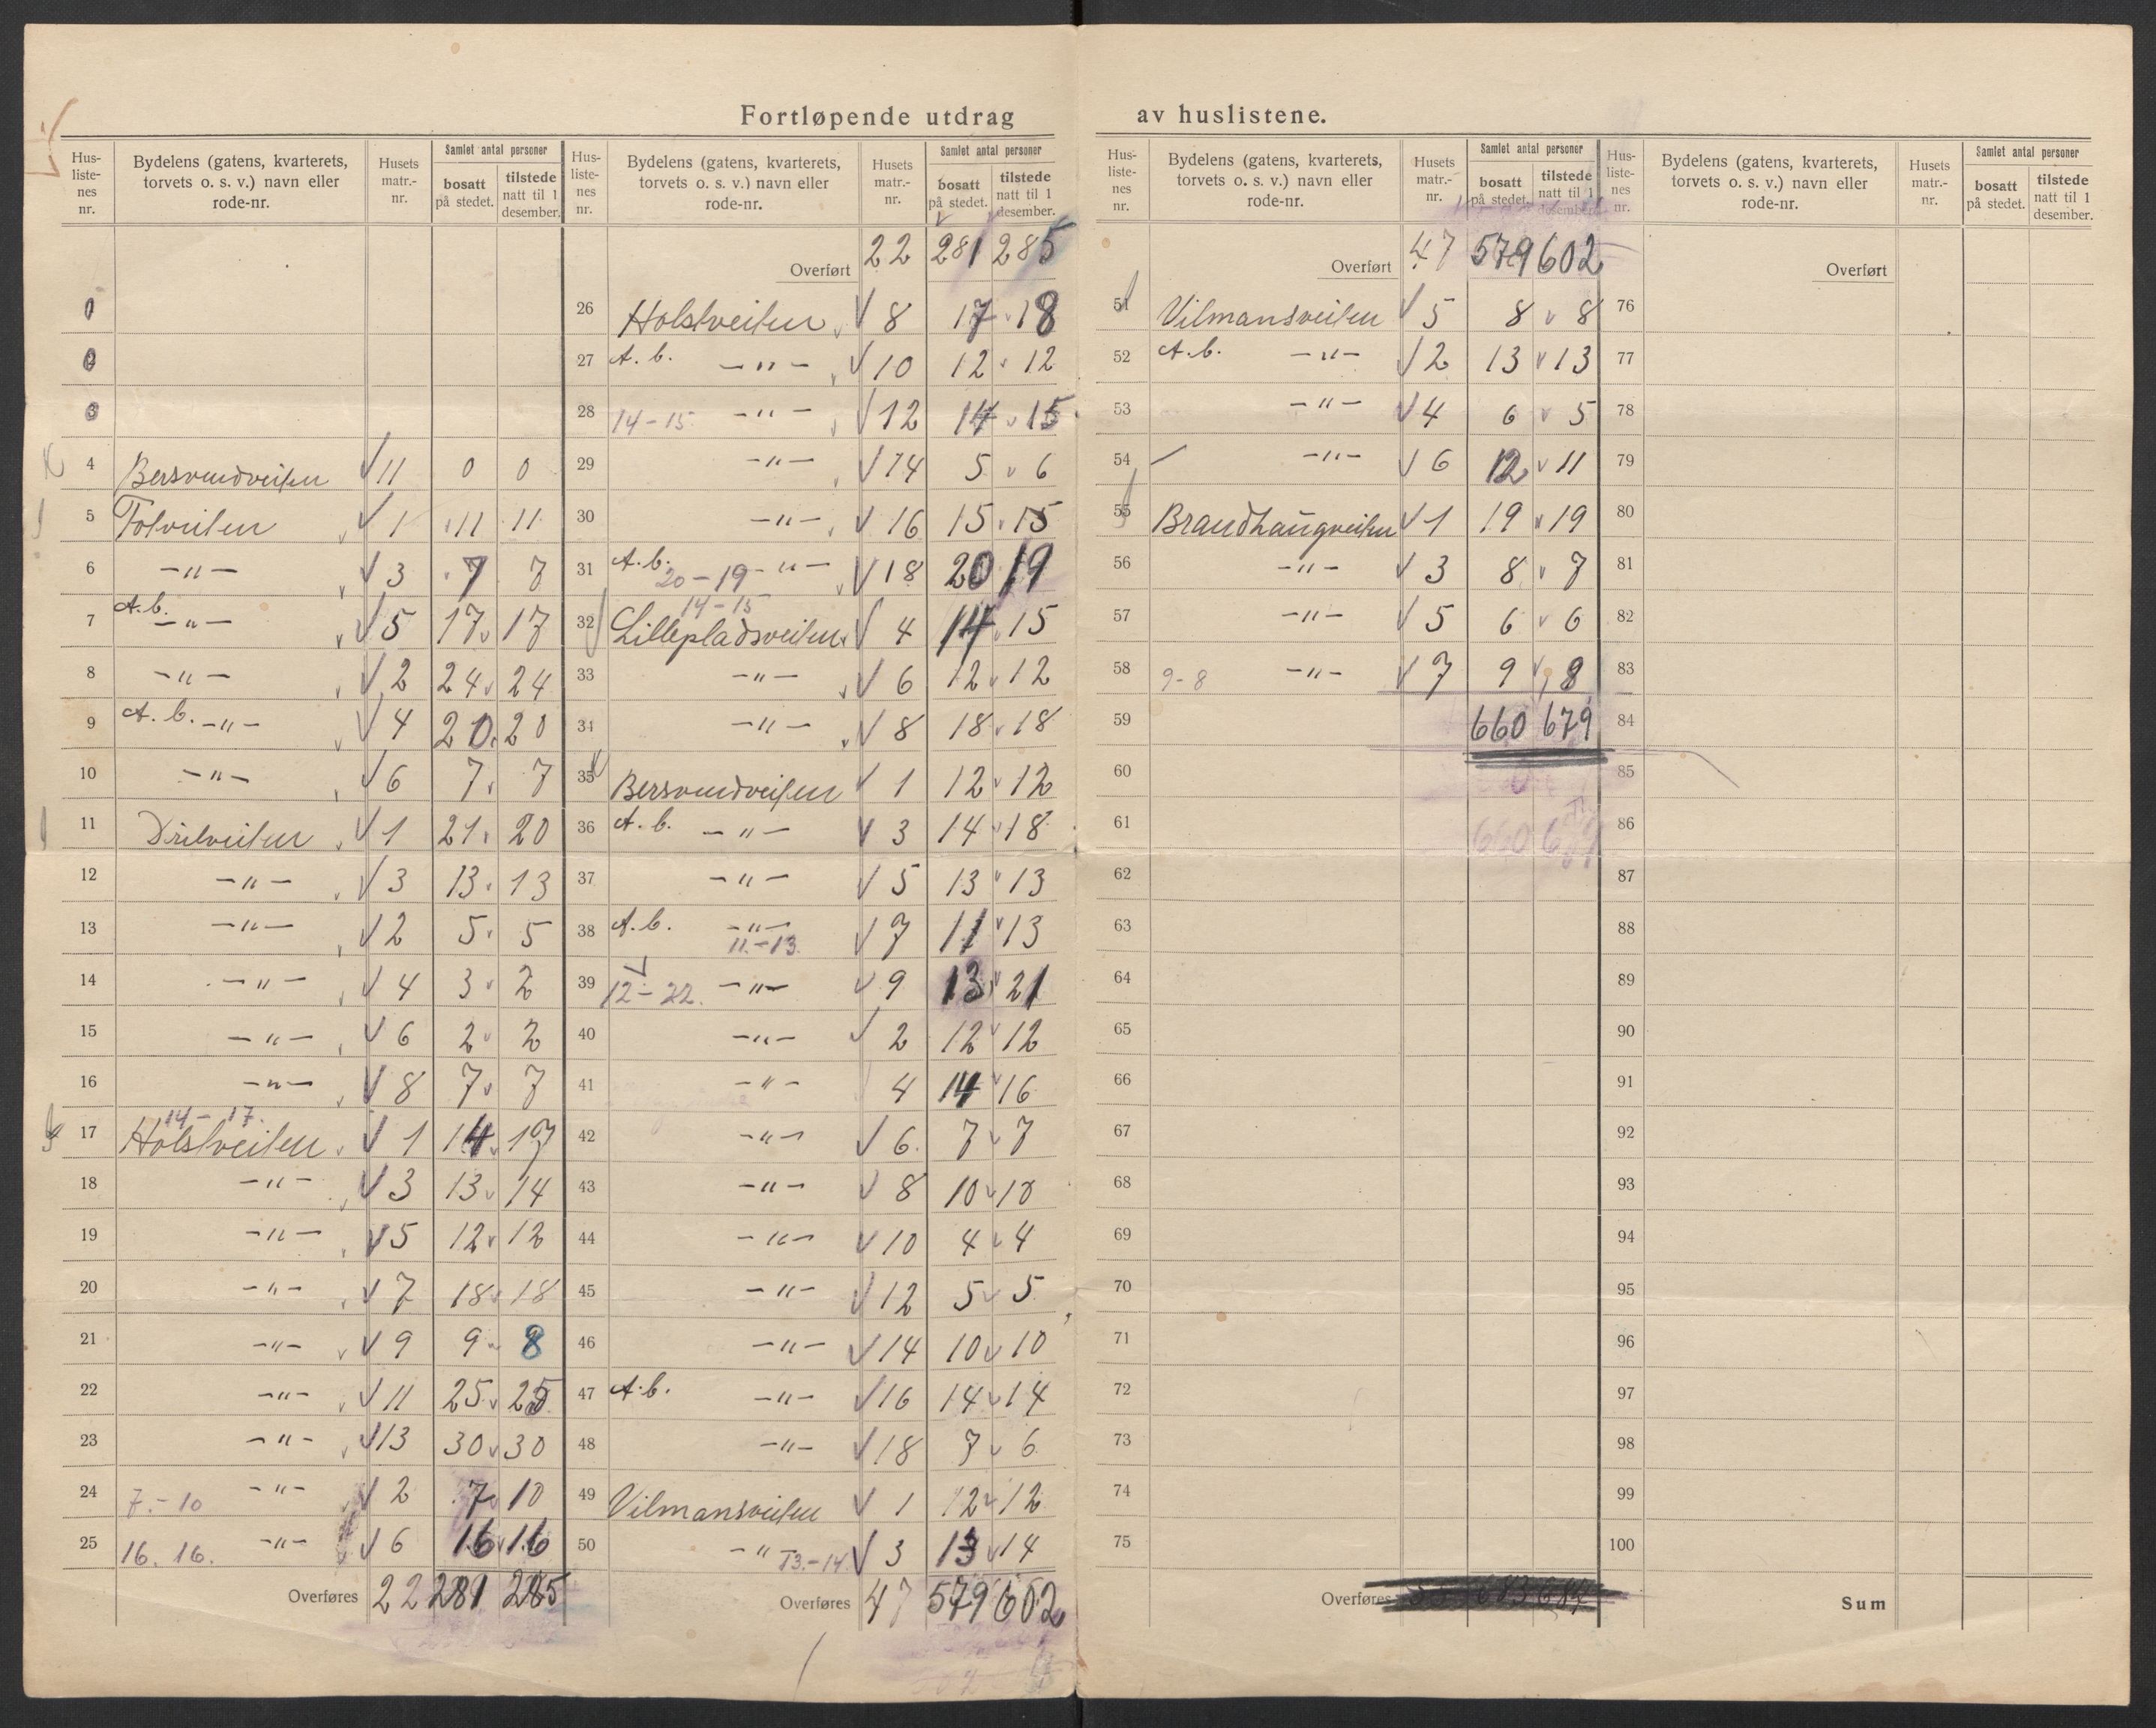 Fortløpende utdrag av huslistene.
Hus-liste-nes nr. Bydelens (gatens, kvarterets, torvets o. s. v.) navn eller rode-nr. Husets matr.-nr. Samlet antal personer bosatt på stedet. tilstede natt til 1 desember.
1
2
3
4 Bersvendveiten 11 0 0
5 Totveiten 1 11 11
6 —"— 3 7 7
7 A.b. —"— 5 17 17
8 —"— 2 24 24
9 A.b. —"— 4 20 20
10 —"— 6 7 7
11 Drilveiten 1 21 20
12 —"— 3 13 13
13 —"— 2 5 5
14 —"— 4 3 2
15 —"— 6 2 2
16 —"— 8 7 7
14-17.
17 Holstveiten 1 14 17
18 —"— 3 13 14
19 —"— 5 12 12
20 —"— 7 18 18
21 —"— 9 9 8
22 —"— 11 25 25
23 —"— 13 30 30
24 7.-10 —"— 2 7 10
25 16. 16. —"— 6 16 16
Overføres 22 281 285
Hus-liste-nes nr. Bydelens (gatens, kvarterets, torvets o. s. v.) navn eller rode-nr. Husets matr.-nr. Samlet antal personer bosatt på stedet. tilstede natt til 1 desember.
Overført 22 281 285
26 Holstveiten 8 17 18
27 A.b. —"— 10 12 12
28 14-15 —"— 12 14 15
29 —"— 14 5 6
30 —"— 16 15 15
31 A.b. 20-19 —"— 18 20 19
14-15
32 Lillepladsveiten 4 14 15
33 —"— 6 12 12
34 —"— 8 18 18
35 Bersvendveiten 1 12 12
36 A.b. —"— 3 14 18
37 —"— 5 13 13
38 A.b. —"— 7 11 13
11.-13.
39 12-22. —"— 9 13 21
40 —"— 2 12 12
41 —"— 4 14 16
42 —"— 6 7 7
43 —"— 8 10 10
44 —"— 10 4 4
45 —"— 12 5 5
46 —"— 14 10 10
47 A.b. —"— 16 14 14
48 —"— 18 7 6
49 Vilmansveiten 1 12 12
50 —"— 13.-14. 3 13 14
Overføres 47 579 602
Hus-liste-nes nr. Bydelens (gatens, kvarterets, torvets o. s. v.) navn eller rode-nr. Husets matr.-nr. Samlet antal personer bosatt på stedet. tilstede natt til 1 desember.
Overført 47 579 602
51 Vilmansveiten 5 8 8
52 A.b. —"— 2 13 13
53 —"— 4 6 5
54 —"— 6 12 11
55 Brandhaugveiten 1 19 19
56 —"— 3 8 7
57 —"— 5 6 6
58 9-8 —"— 7 9 8
59 660 679
60
61 660 679
62
63
64
65
66
67
68
69
70
71
72
73
74
75
Overføres
Hus-liste-nes nr. Bydelens (gatens, kvarterets, torvets o. s. v.) navn eller rode-nr. Husets matr.-nr. Samlet antal personer bosatt på stedet. tilstede natt til 1 desember.
Overført
76
77
78
79
80
81
82
83
84
85
86
87
88
89
90
91
92
93
94
95
96
97
98
99
100
Sum